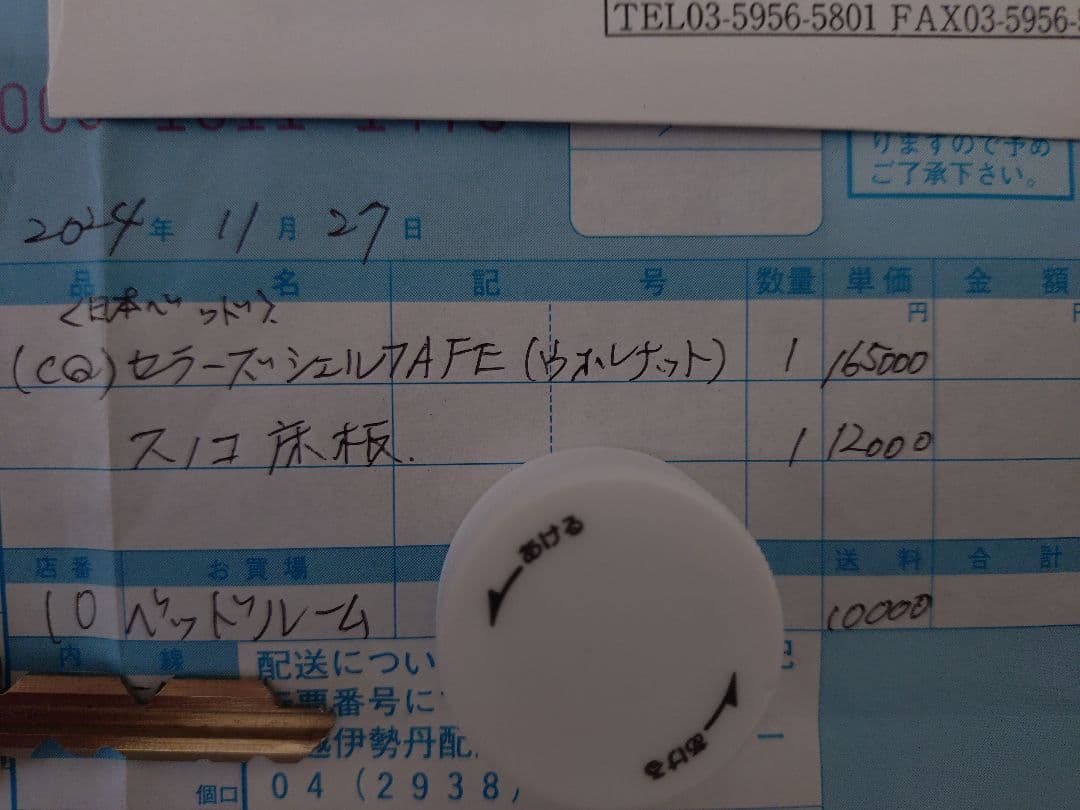 TEL03-5956-5801 FAX03-5956-
りますので予め
ご了承下さい。
2024年 11月 27日
品 名 記 号 数量 単価 金 額
<日本ベッド> 円
(CQ) セラーズシェルフAFE (ウォルナット) 1 165000
スノコ床板. 1 12000
店番 お買場 送 料 合 計
10 ベッドルーム 10000
内 線
配送につい
票番号に
越伊勢丹配
個口 04 (2938)
あける
あける